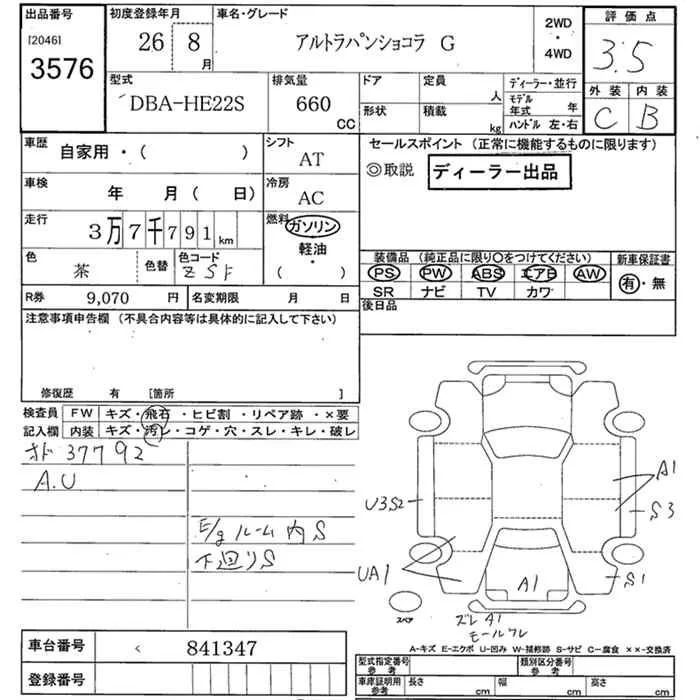 出品番号
[2046]
3576
初度登録年月
26 8 月
車名・グレード
アルトラパンショコラ G
2WD
・
4WD
評価点
3.5
外装 内装
C B
型式
DBA-HE22S
排気量
660 CC
ドア
形状
定員 人
積載 kg
ディーラー・並行
モデル年式 年
ハンドル 左・右
車歴
自家用・( )
シフト
AT
セールスポイント (正常に機能するものに限ります)
◎取説 ディーラー出品
車検
年 月( 日)
冷房
AC
走行
3万7千791km
燃料
ガソリン
軽油・
( )
色
茶
色替
色コード
ZSF
装備品 (純正品に限り○をつけてください)
PS PW ABS エアB AW
SR ナビ TV カワ
新車保証書
有・無
R券 9,070 円
名変期限 月 日
後日品
注意事項申告欄 (不具合内容等は具体的に記入して下さい)
修復歴 有 [箇所 ]
検査員
記入欄
FW キズ・飛石・ヒビ割・リペア跡・×要
内装 キズ・汚レ・コゲ・穴・スレ・キレ・破レ
オド 37792
A.U
E/gルーム内S
下廻りS
A1
U3S2
S3
UA1
A1
S1
スペア
ズレA1
モールワレ
A-キズ E-エクボ U-凹み W-補修跡 S-サビ C-腐食 ××-交換済
車台番号 < 841347
登録番号
型式指定番号
参考
類別区分番号
参考
車庫証明用
参考
長さ cm
幅 cm
高さ cm